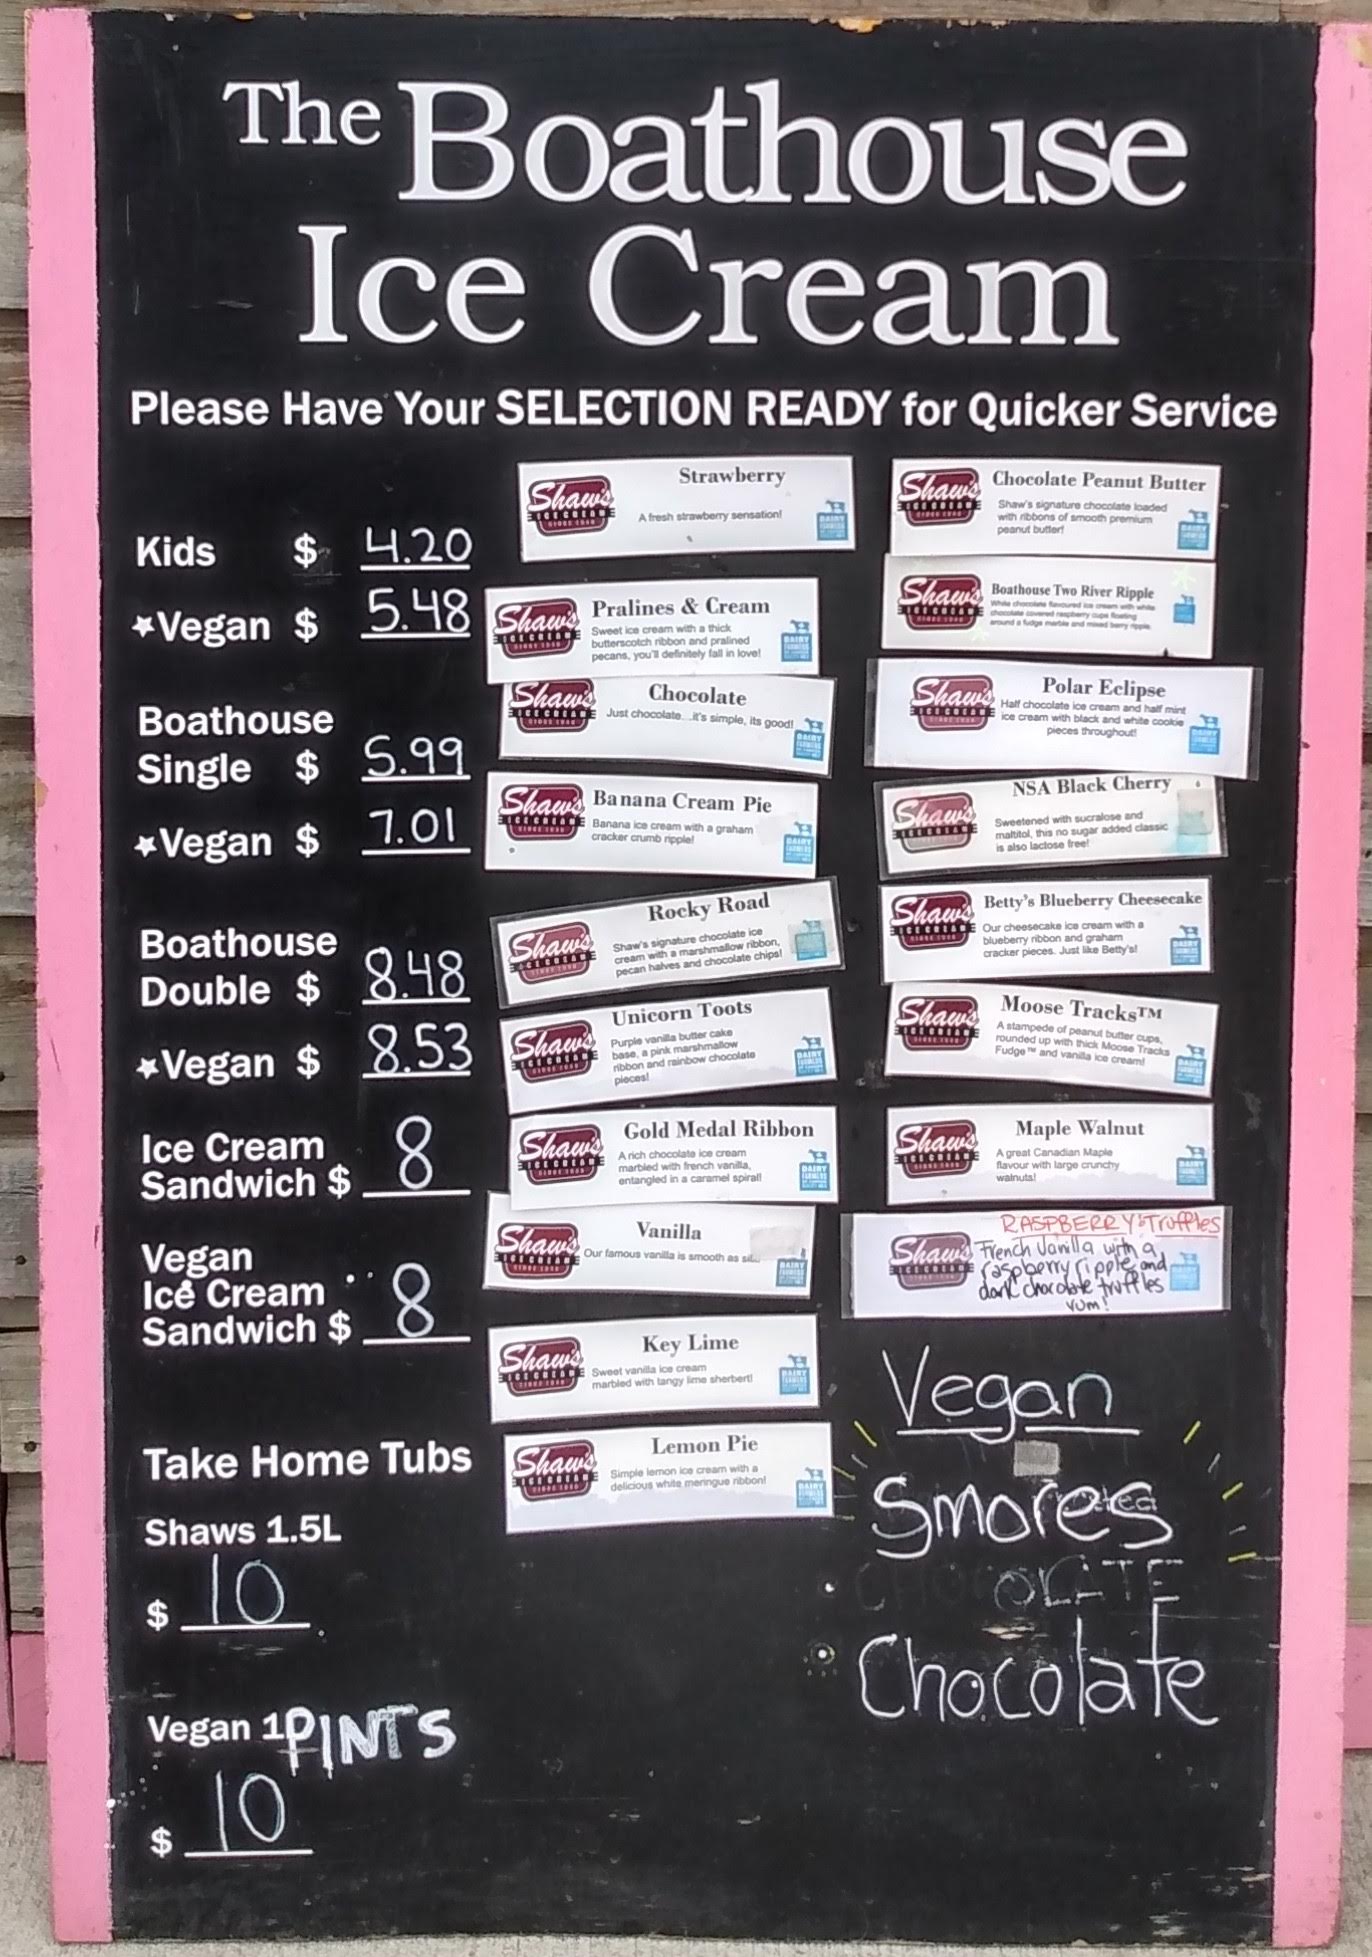 The Boathouse
Ice Cream
Please Have Your SELECTION READY for Quicker Service
Kids $ 4.20
Vegan $ 5.48
Boathouse
Single $ 5.99
Vegan $ 7.01
Boathouse
Double $ 8.48
Vegan $ 8.53
Ice Cream
Sandwich $ 8
Vegan
Ice Cream
Sandwich $ 8
Take Home Tubs
Shaws 1.5L
$ 10
Vegan 1PINTS
$ 10
Shaw's
ICE CREAM
Strawberry
A fresh strawberry sensation!
Shaw's
ICE CREAM
Pralines & Cream
Sweet ice cream with a thick
butterscotch ribbon and pralined
pecans, you'll definitely fall in love!
Shaw's
ICE CREAM
Chocolate
Just chocolate...it's simple, its good!
Shaw's
ICE CREAM
Banana Cream Pie
Banana ice cream with a graham
cracker crumb ripple!
Shaw's
ICE CREAM
Rocky Road
Shaw's signature chocolate ice
cream with a marshmallow ribbon,
pecan halves and chocolate chips!
Shaw's
ICE CREAM
Unicorn Toots
Purple vanilla butter cake
base, a pink marshmallow
ribbon and rainbow chocolate
pieces!
Shaw's
ICE CREAM
Gold Medal Ribbon
A rich chocolate ice cream
marbled with french vanilla,
entangled in a caramel spiral!
Shaw's
ICE CREAM
Vanilla
Our famous vanilla is smooth as
Shaw's
ICE CREAM
Key Lime
Sweet vanilla ice cream
marbled with tangy lime sherbert!
Shaw's
ICE CREAM
Lemon Pie
Simple lemon ice cream with a
delicious white meringue ribbon!
Shaw's
ICE CREAM
Chocolate Peanut Butter
Shaw's signature chocolate loaded
with ribbons of smooth premium
peanut butter!
Shaw's
ICE CREAM
Boathouse Two River Ripple
White chocolate flavoured ice cream with white
chocolate covered raspberry cups floating
around a fudge marble and mixed berry ripple.
Shaw's
ICE CREAM
Polar Eclipse
Half chocolate ice cream and half mint
ice cream with black and white cookie
pieces throughout!
Shaw's
ICE CREAM
NSA Black Cherry
Sweetened with sucralose and
maltitol, this no sugar added classic
is also lactose free!
Shaw's
ICE CREAM
Betty's Blueberry Cheesecake
Our cheesecake ice cream with a
blueberry ribbon and graham
cracker pieces. Just like Betty's!
Shaw's
ICE CREAM
Moose Tracks™
A stampede of peanut butter cups,
rounded up with thick Moose Tracks
Fudge™ and vanilla ice cream!
Shaw's
ICE CREAM
Maple Walnut
A great Canadian Maple
flavour with large crunchy
walnuts!
Shaw's
ICE CREAM
RASPBERRY Truffles
French Vanilla with a
raspberry ripple and
dark chocolate truffles
YUM!
Vegan
Smores
Chocolate